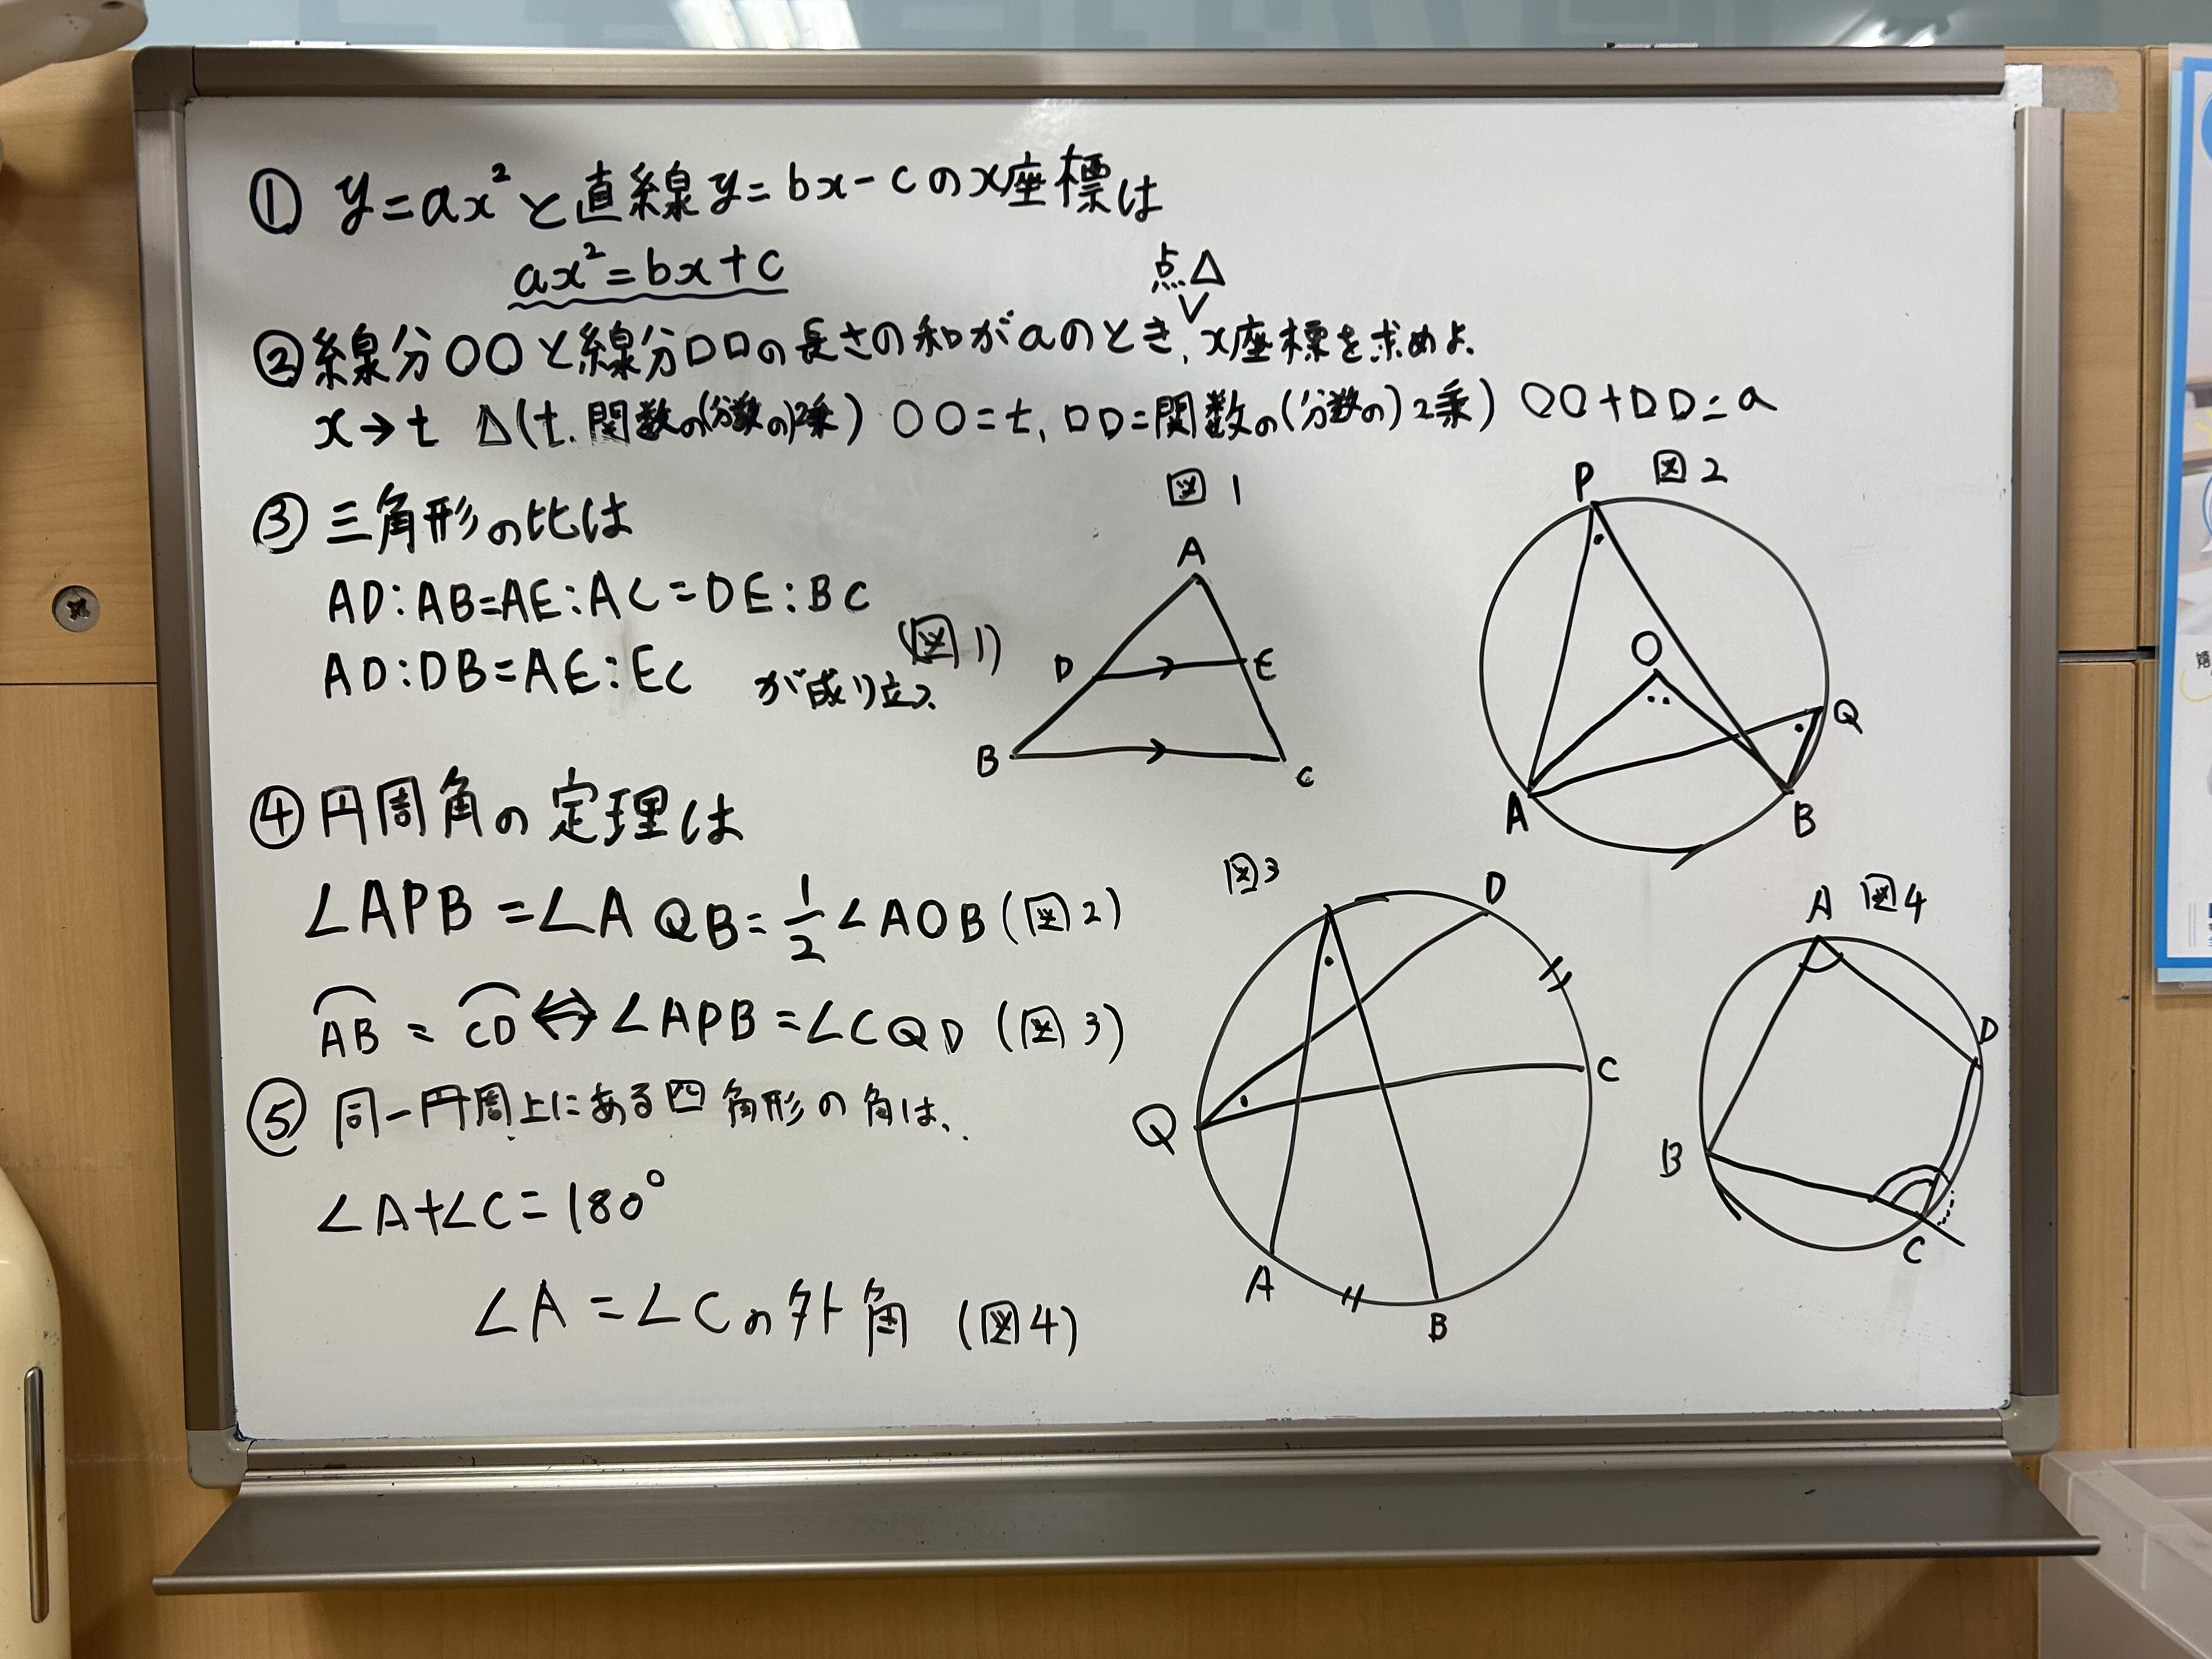 ① y=ax²と直線y=bx-cのx座標は
ax²=bx+c
点△
②線分○○と線分□□の長さの和がaのとき、x座標を求めよ.
x→t △(t.関数の(分数の)2乗) ○○=t, □□=関数の(分数の)2乗) ○○+□□=a
③ 三角形の比は
AD:AB=AE:AC=DE:BC
AD:DB=AE:EC が成り立つ (図1)
図1
A
D
E
B
C
図2
P
O
Q
A
B
④ 円周角の定理は
∠APB=∠AQB=1/2∠AOB(図2)
⌒AB=⌒CD⇔∠APB=∠CQD (図3)
図3
D
C
Q
A
B
図4
A
D
B
C
⑤ 同一円周上にある四角形の角は、
∠A+∠C=180°
∠A=∠Cの外角 (図4)